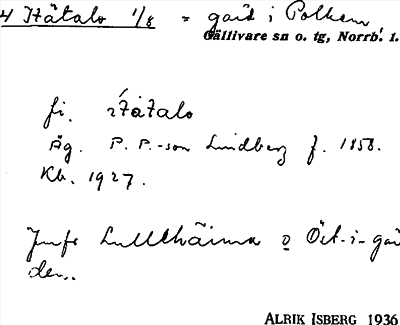 4 Hätalo 1/8 = gård i Polken
Gällivare sn o. tg, Norrb. l.
fi. ı̍tàtalo
Äg. P. P.-son Lindberg f. 1858.
Kb. 1927.
Jmfr Lullehäima o Öst-i-går
den.
ALRIK ISBERG 1936